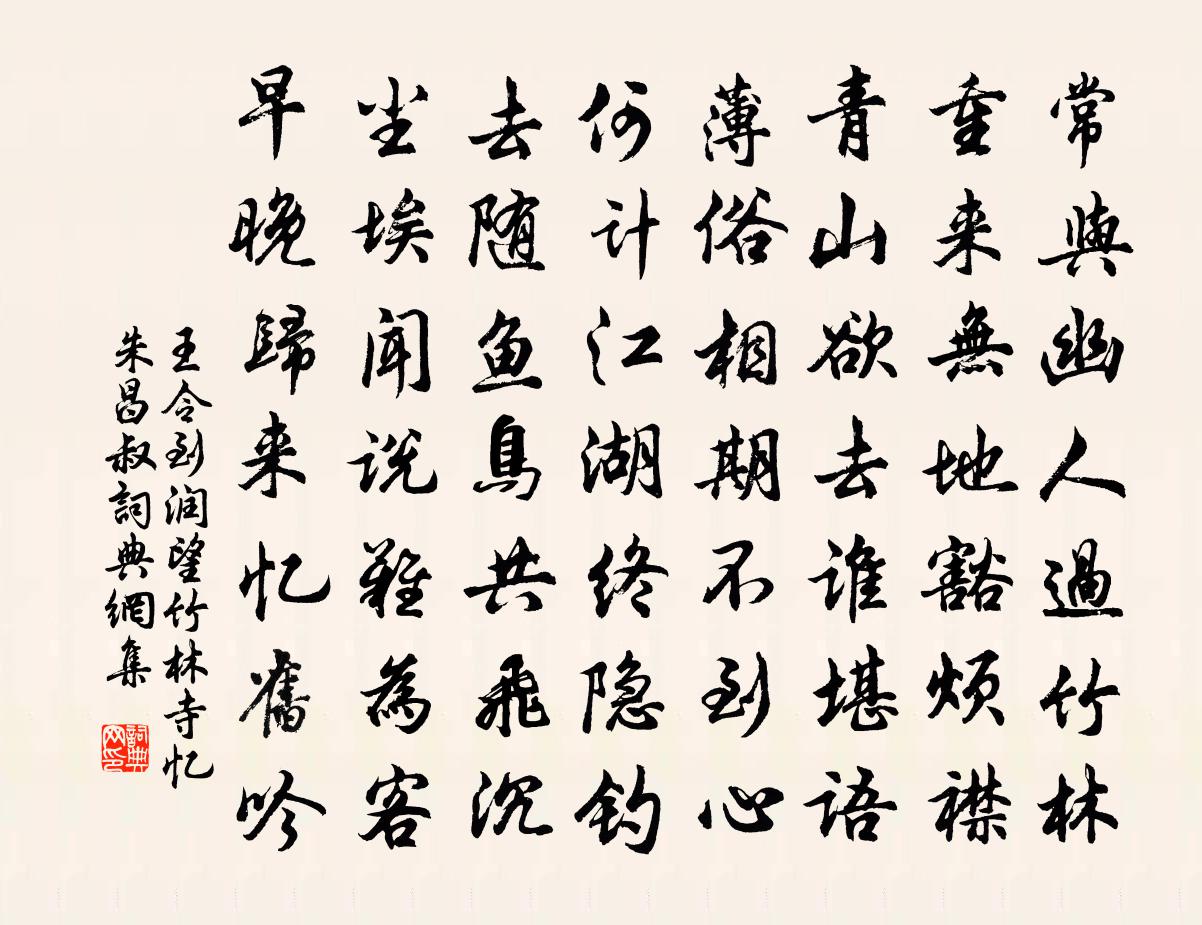 常與幽人過竹林
重来無地豁烦襟
青山欲去誰堪語
薄俗相期不到心
何计江湖终隐钓
去随鱼鳥共飛沉
尘埃闻说難為客
早晚歸来忆舊吟
王令到润望竹林寺忆
朱昌叔詞典網集
詞典
网印